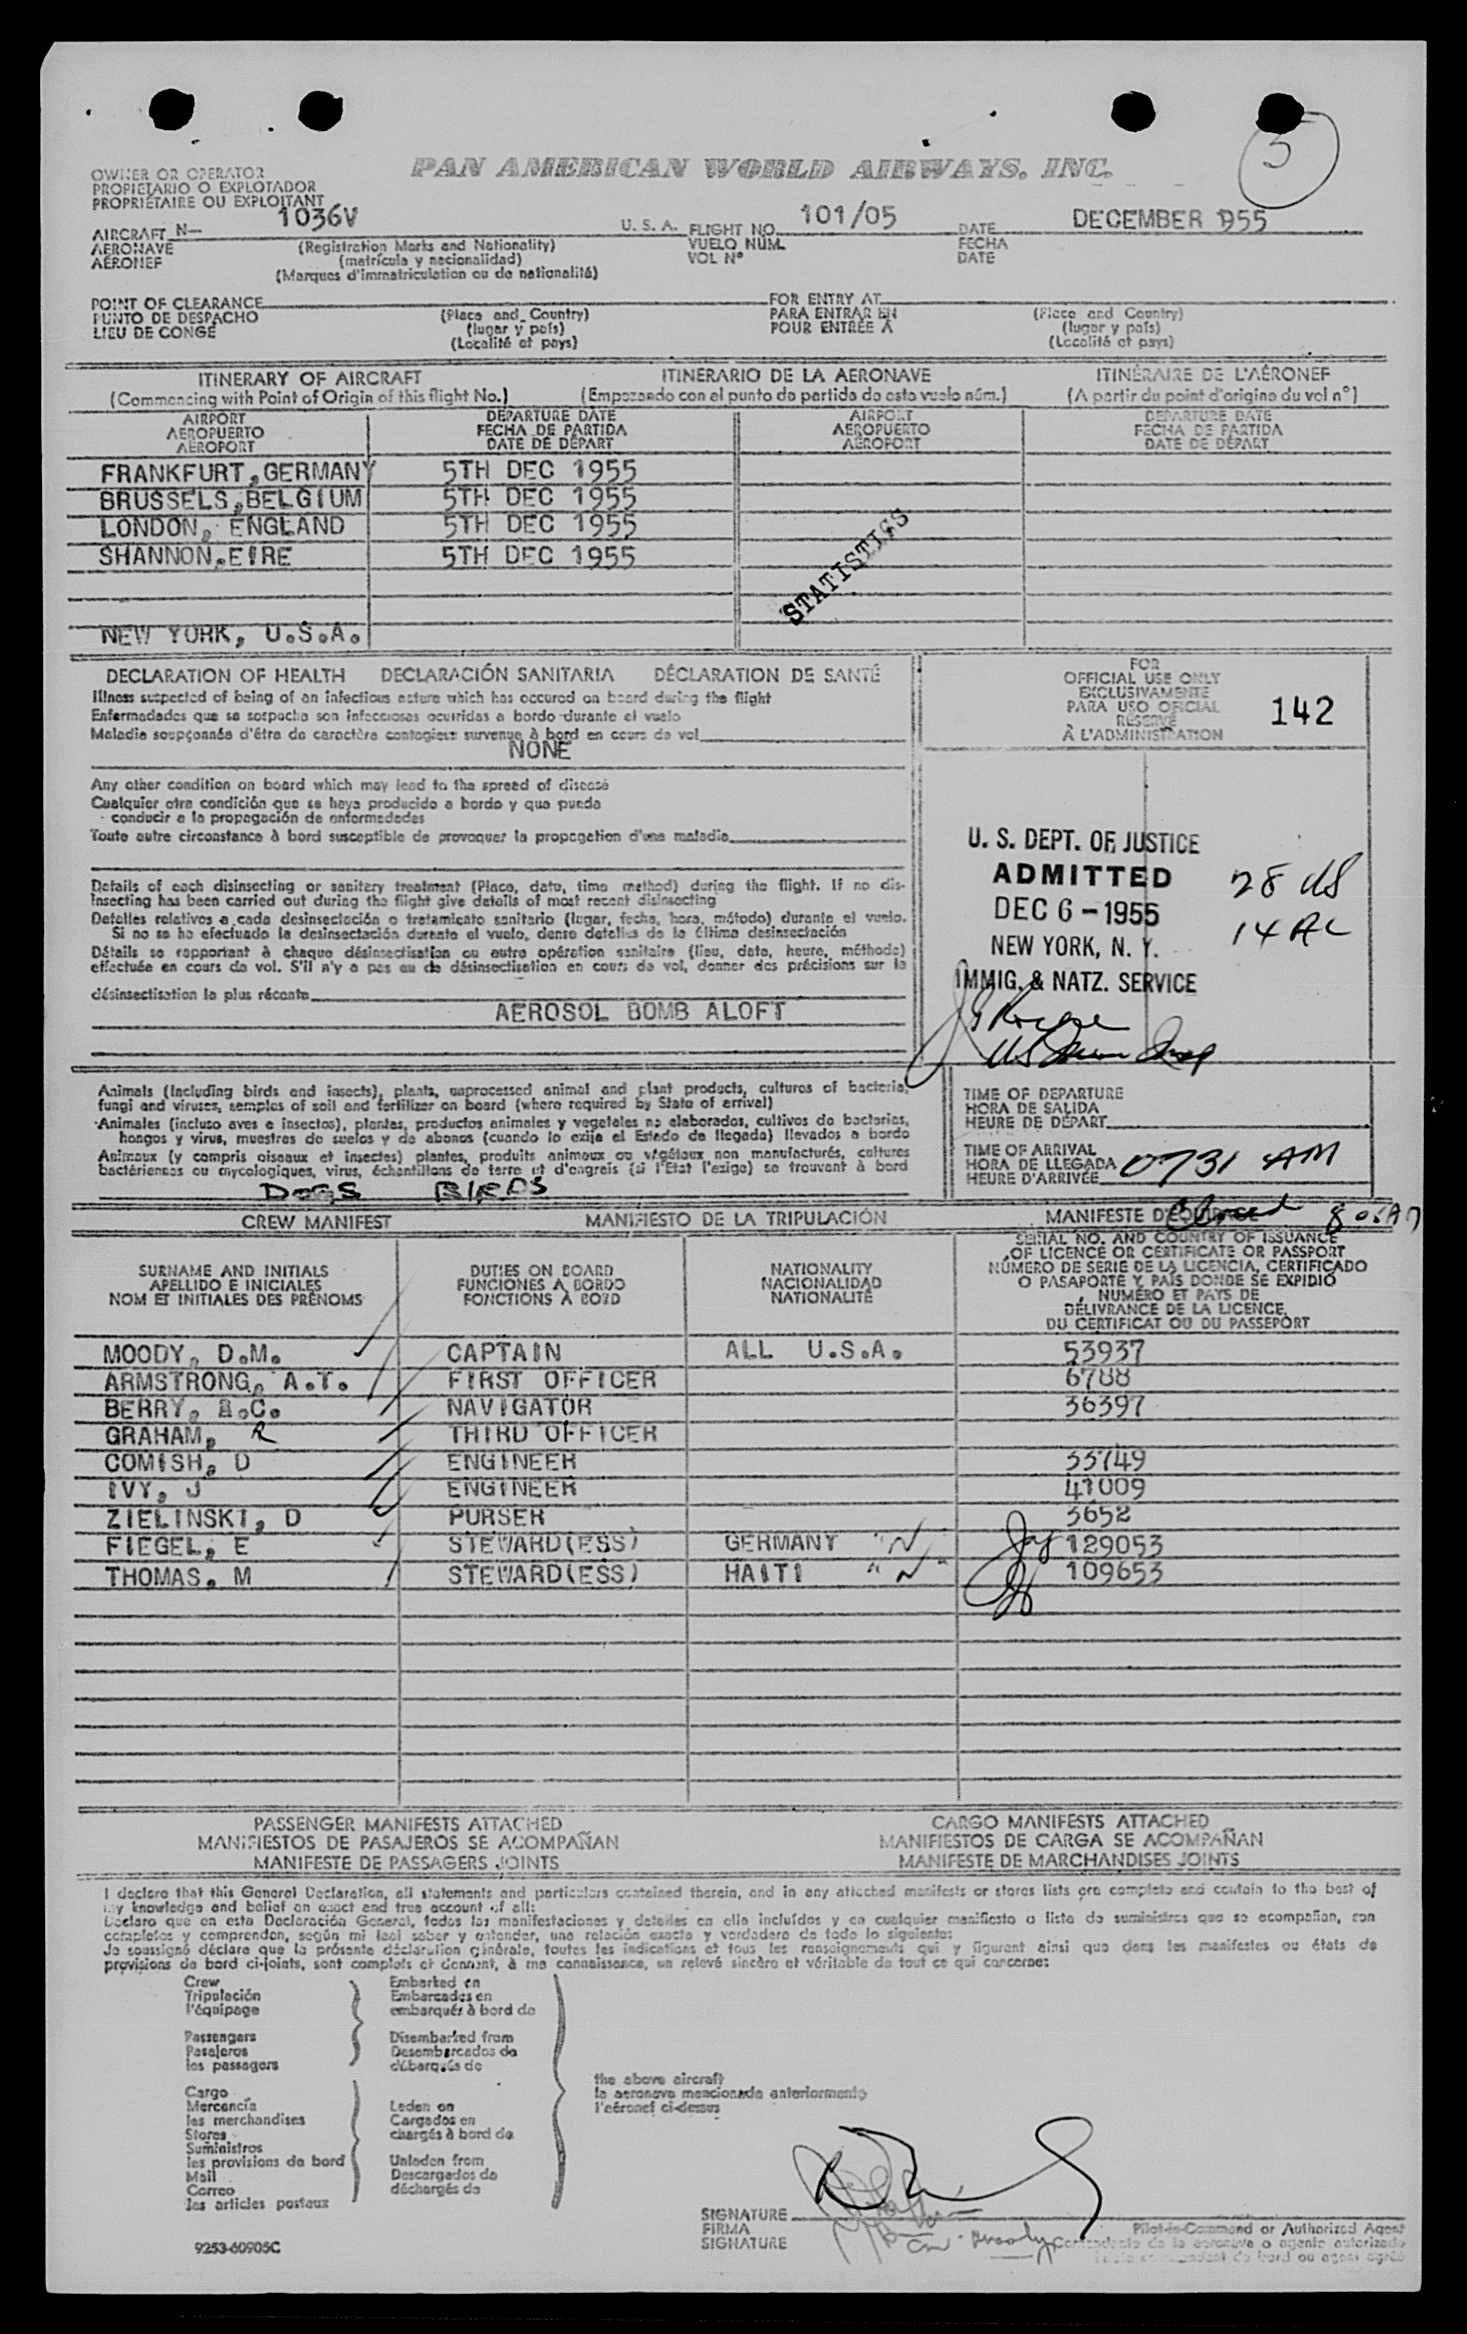 5
OWNER OR OPERATOR
PROPIETARIO O EXPLOTADOR
PROPRIÉTAIRE OU EXPLOITANT
PAN AMERICAN WORLD AIRWAYS, INC.
AIRCRAFT N- 1036V U.S.A. FLIGHT NO. 101/05 DATE DECEMBER 1955
AERONAVE (Registration Marks and Nationality) VUELO NÚM. FECHA
AÉRONEF (matrícula y nacionalidad) VOL Nº DATE
(Marques d'immatriculation ou de nationalité)
POINT OF CLEARANCE FOR ENTRY AT
PUNTO DE DESPACHO (Place and Country) PARA ENTRAR EN (Place and Country)
LIEU DE CONGÉ (lugar y país) POUR ENTRÉE À (lugar y país)
(Localité et pays) (Localité et pays)
ITINERARY OF AIRCRAFT ITINERARIO DE LA AERONAVE ITINÉRAIRE DE L'AÉRONEF
(Commencing with Point of Origin of this flight No.) (Empezando con el punto de partida de este vuelo núm.) (A partir du point d'origine du vol nº)
AIRPORT DEPARTURE DATE AIRPORT DEPARTURE DATE
AEROPUERTO FECHA DE PARTIDA AEROPUERTO FECHA DE PARTIDA
AÉROPORT DATE DE DÉPART AÉROPORT DATE DE DÉPART
FRANKFURT,GERMANY 5TH DEC 1955
BRUSSELS,BELGIUM 5TH DEC 1955
LONDON, ENGLAND 5TH DEC 1955
SHANNON.EIRE 5TH DEC 1955
STATISTICS
NEW YORK, U.S.A.
DECLARATION OF HEALTH DECLARACIÓN SANITARIA DÉCLARATION DE SANTÉ
Illness suspected of being of an infectious nature which has occured on board during the flight
Enfermedades que se sospecha son infecciosas ocurridas a bordo durante el vuelo
Maladie soupçonnée d'être de caractère contagieux survenue à bord en cours de vol
NONE
FOR
OFFICIAL USE ONLY
EXCLUSIVAMENTE
PARA USO OFICIAL
RÉSERVÉ
À L'ADMINISTRATION
142
Any other condition on board which may lead to the spread of disease
Cualquier otra condición que se haya producido a bordo y que pueda
conducir a la propagación de enfermedades
Toute autre circonstance à bord susceptible de provoquer la propagation d'une maladie
Details of each disinsecting or sanitary treatment (Place, date, time method) during the flight. If no dis-
insecting has been carried out during the flight give details of most recent disinsecting
Detalles relativos a cada desinsectación o tratamiento sanitario (lugar, fecha, hora, método) durante el vuelo.
Si no se ha efectuado la desinsectación durante el vuelo, dense detalles de la última desinsectación
Détails se rapportant à chaque désinsectisation ou autre opération sanitaire (lieu, date, heure, méthode)
effectuée en cours de vol. S'il n'y a pas eu de désinsectisation en cours de vol, donner des précisions sur la
désinsectisation la plus récente
AEROSOL BOMB ALOFT
U. S. DEPT. OF JUSTICE
ADMITTED
DEC 6 - 1955
NEW YORK, N. Y.
IMMIG. & NATZ. SERVICE
28 US
14 AL
Animals (including birds and insects), plants, unprocessed animal and plant products, cultures of bacteria,
fungi and viruses, samples of soil and fertilizer on board (where required by State of arrival)
Animales (incluso aves e insectos), plantas, productos animales y vegetales no elaborados, cultivos de bacterias,
hongos y virus, muestras de suelos y de abonos (cuando lo exija el Estado de llegada) llevados a bordo
Animaux (y compris oiseaux et insectes) plantes, produits animaux ou végétaux non manufacturés, cultures
bactériennes ou mycologiques, virus, échantillons de terre et d'engrais (si l'Etat l'exige) se trouvant à bord
DOGS BIRDS
TIME OF DEPARTURE
HORA DE SALIDA
HEURE DE DÉPART
TIME OF ARRIVAL
HORA DE LLEGADA
HEURE D'ARRIVÉE 0731 AM
CREW MANIFEST MANIFIESTO DE LA TRIPULACIÓN MANIFESTE D'ÉQUIPAGE
SURNAME AND INITIALS
APELLIDO E INICIALES
NOM ET INITIALES DES PRÉNOMS
DUTIES ON BOARD
FUNCIONES A BORDO
FONCTIONS À BORD
NATIONALITY
NACIONALIDAD
NATIONALITÉ
SERIAL NO. AND COUNTRY OF ISSUANCE
OF LICENCE OR CERTIFICATE OR PASSPORT
NÚMERO DE SERIE DE LA LICENCIA, CERTIFICADO
O PASAPORTE Y PAÍS DONDE SE EXPIDIÓ
NUMÉRO ET PAYS DE
DÉLIVRANCE DE LA LICENCE,
DU CERTIFICAT OU DU PASSEPORT
MOODY, D.M. CAPTAIN ALL U.S.A. 53937
ARMSTRONG, A.T. FIRST OFFICER 6788
BERRY, .C. NAVIGATOR 36397
GRAHAM, R THIRD OFFICER
COMISH, D ENGINEER 55749
IVY, J ENGINEER 41009
ZIELINSKI, D PURSER 3652
FIEGEL, E STEWARD(ESS) GERMANY "N" 129053
THOMAS. M STEWARD(ESS) HAITI "N" 109653
PASSENGER MANIFESTS ATTACHED CARGO MANIFESTS ATTACHED
MANIFIESTOS DE PASAJEROS SE ACOMPAÑAN MANIFIESTOS DE CARGA SE ACOMPAÑAN
MANIFESTE DE PASSAGERS JOINTS MANIFESTE DE MARCHANDISES JOINTS
I declare that this General Declaration, all statements and particulars contained therein, and in any attached manifests or stores lists are complete and contain to the best of
my knowledge and belief an exact and true account of all:
Declaro que en esta Declaración General, todas las manifestaciones y detalles en ella incluídos y en cualquier manifiesto o lista de suministros que se acompañan, son
completos y comprenden, según mi leal saber y entender, una relación exacta y verdadera de todo lo siguiente:
Je soussigné déclare que la présente déclaration générale, toutes les indications et tous les renseignements qui y figurent ainsi que dans les manifestes ou états de
provisions de bord ci-joints, sont complets et donnent, à ma connaissance, un relevé sincère et véritable de tout ce qui concerne:
Crew Embarked on
Tripulación Embarcados en
l'équipage embarqués à bord de
Passengers Disembarked from
Pasajeros Desembarcados de
les passagers débarqués de
the above aircraft
la aeronave mencionada anteriormente
l'aéronef ci-dessus
Cargo
Mercancía Laden on
les merchandises Cargados en
Stores chargés à bord de
Suministros
les provisions de bord Unladen from
Mail Descargados de
Correo déchargés de
les articles postaux
SIGNATURE
FIRMA
SIGNATURE
Pilot-in-Command or Authorized Agent
Comandante de la aeronave o agente autorizado
9253-60905C